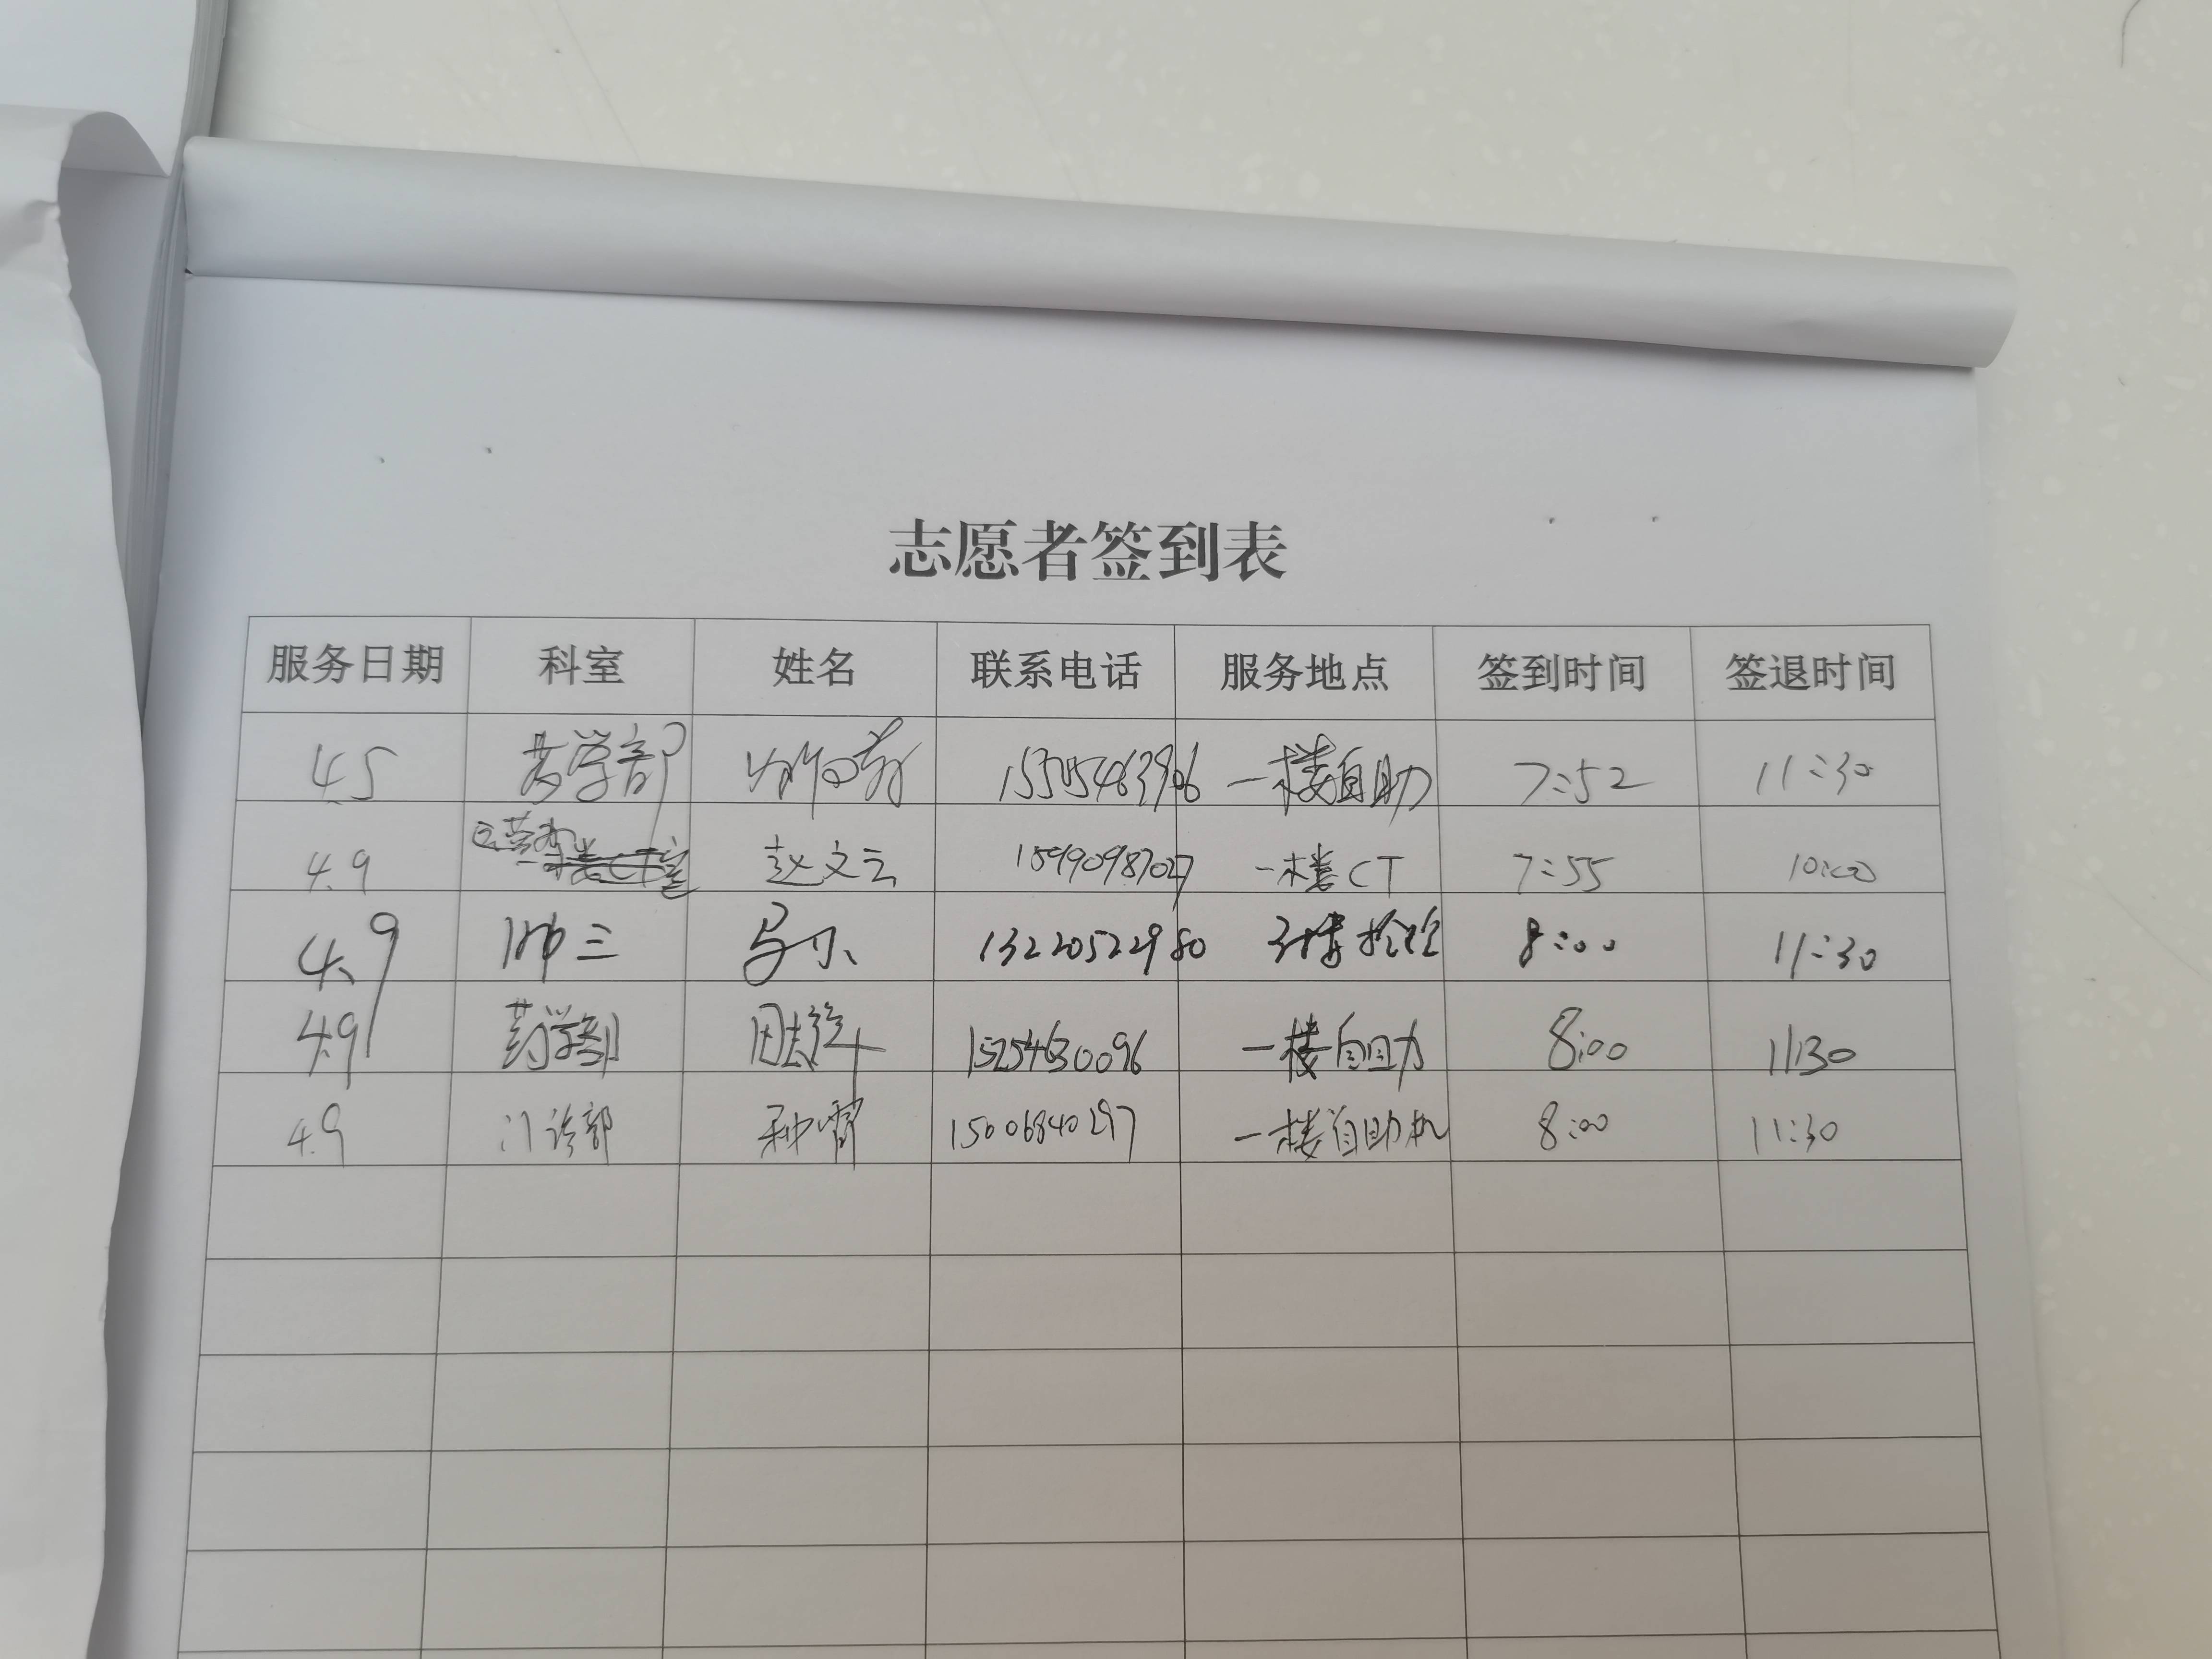 志愿者签到表
服务日期 科室 姓名 联系电话 服务地点 签到时间 签退时间
4.5 药学部 15505463906 一楼自助 7:52 11:30
4.9 赵文云 15990987027 一楼CT 7:55 10:00
4.9 三 13220522980 8:00 11:30
4.9 药学部 15254630096 一楼自助 8:00 11:30
4.9 门诊部 15006840297 一楼自助机 8:00 11:30